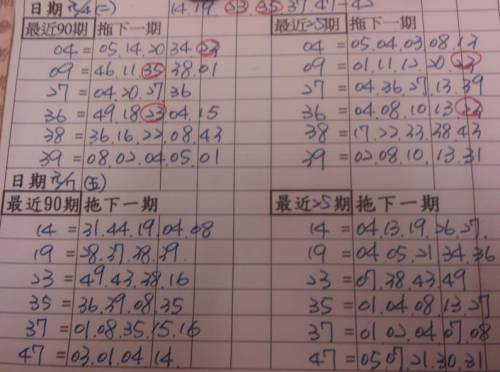 日期 (二) 14.19. 23.35.37.47-
最近90期 拖下一期
04 = 05.14.20.34.23
09 = 46.11.35.38.01
27 = 04.20.27.36
36 = 49.18.23.04.15
38 = 36.16.22.08.43
39 = 08.02.04.05.01
最近25期 拖下一期
04 = 05.04.03.08.13
09 = 01.11.12.20.23
27 = 04.36.27.13.39
36 = 04.08.10.13.23
38 = 17.22.33.38.43
39 = 02.08.10.13.31
日期 (五)
最近90期 拖下一期
14 = 31.44.19.04.08
19 = 28.37.38.39.
23 = 49.43.38.16
35 = 36.39.08.35
37 = 01.08.35.15.16
47 = 03.01.04.14.
最近25期 拖下一期
14 = 04.13.19.26.27.
19 = 04.05.21.34.36
23 = 07.38.43.49
35 = 01.04.08.13.27
37 = 01.02.04.07.08
47 = 05.07.21.30.31